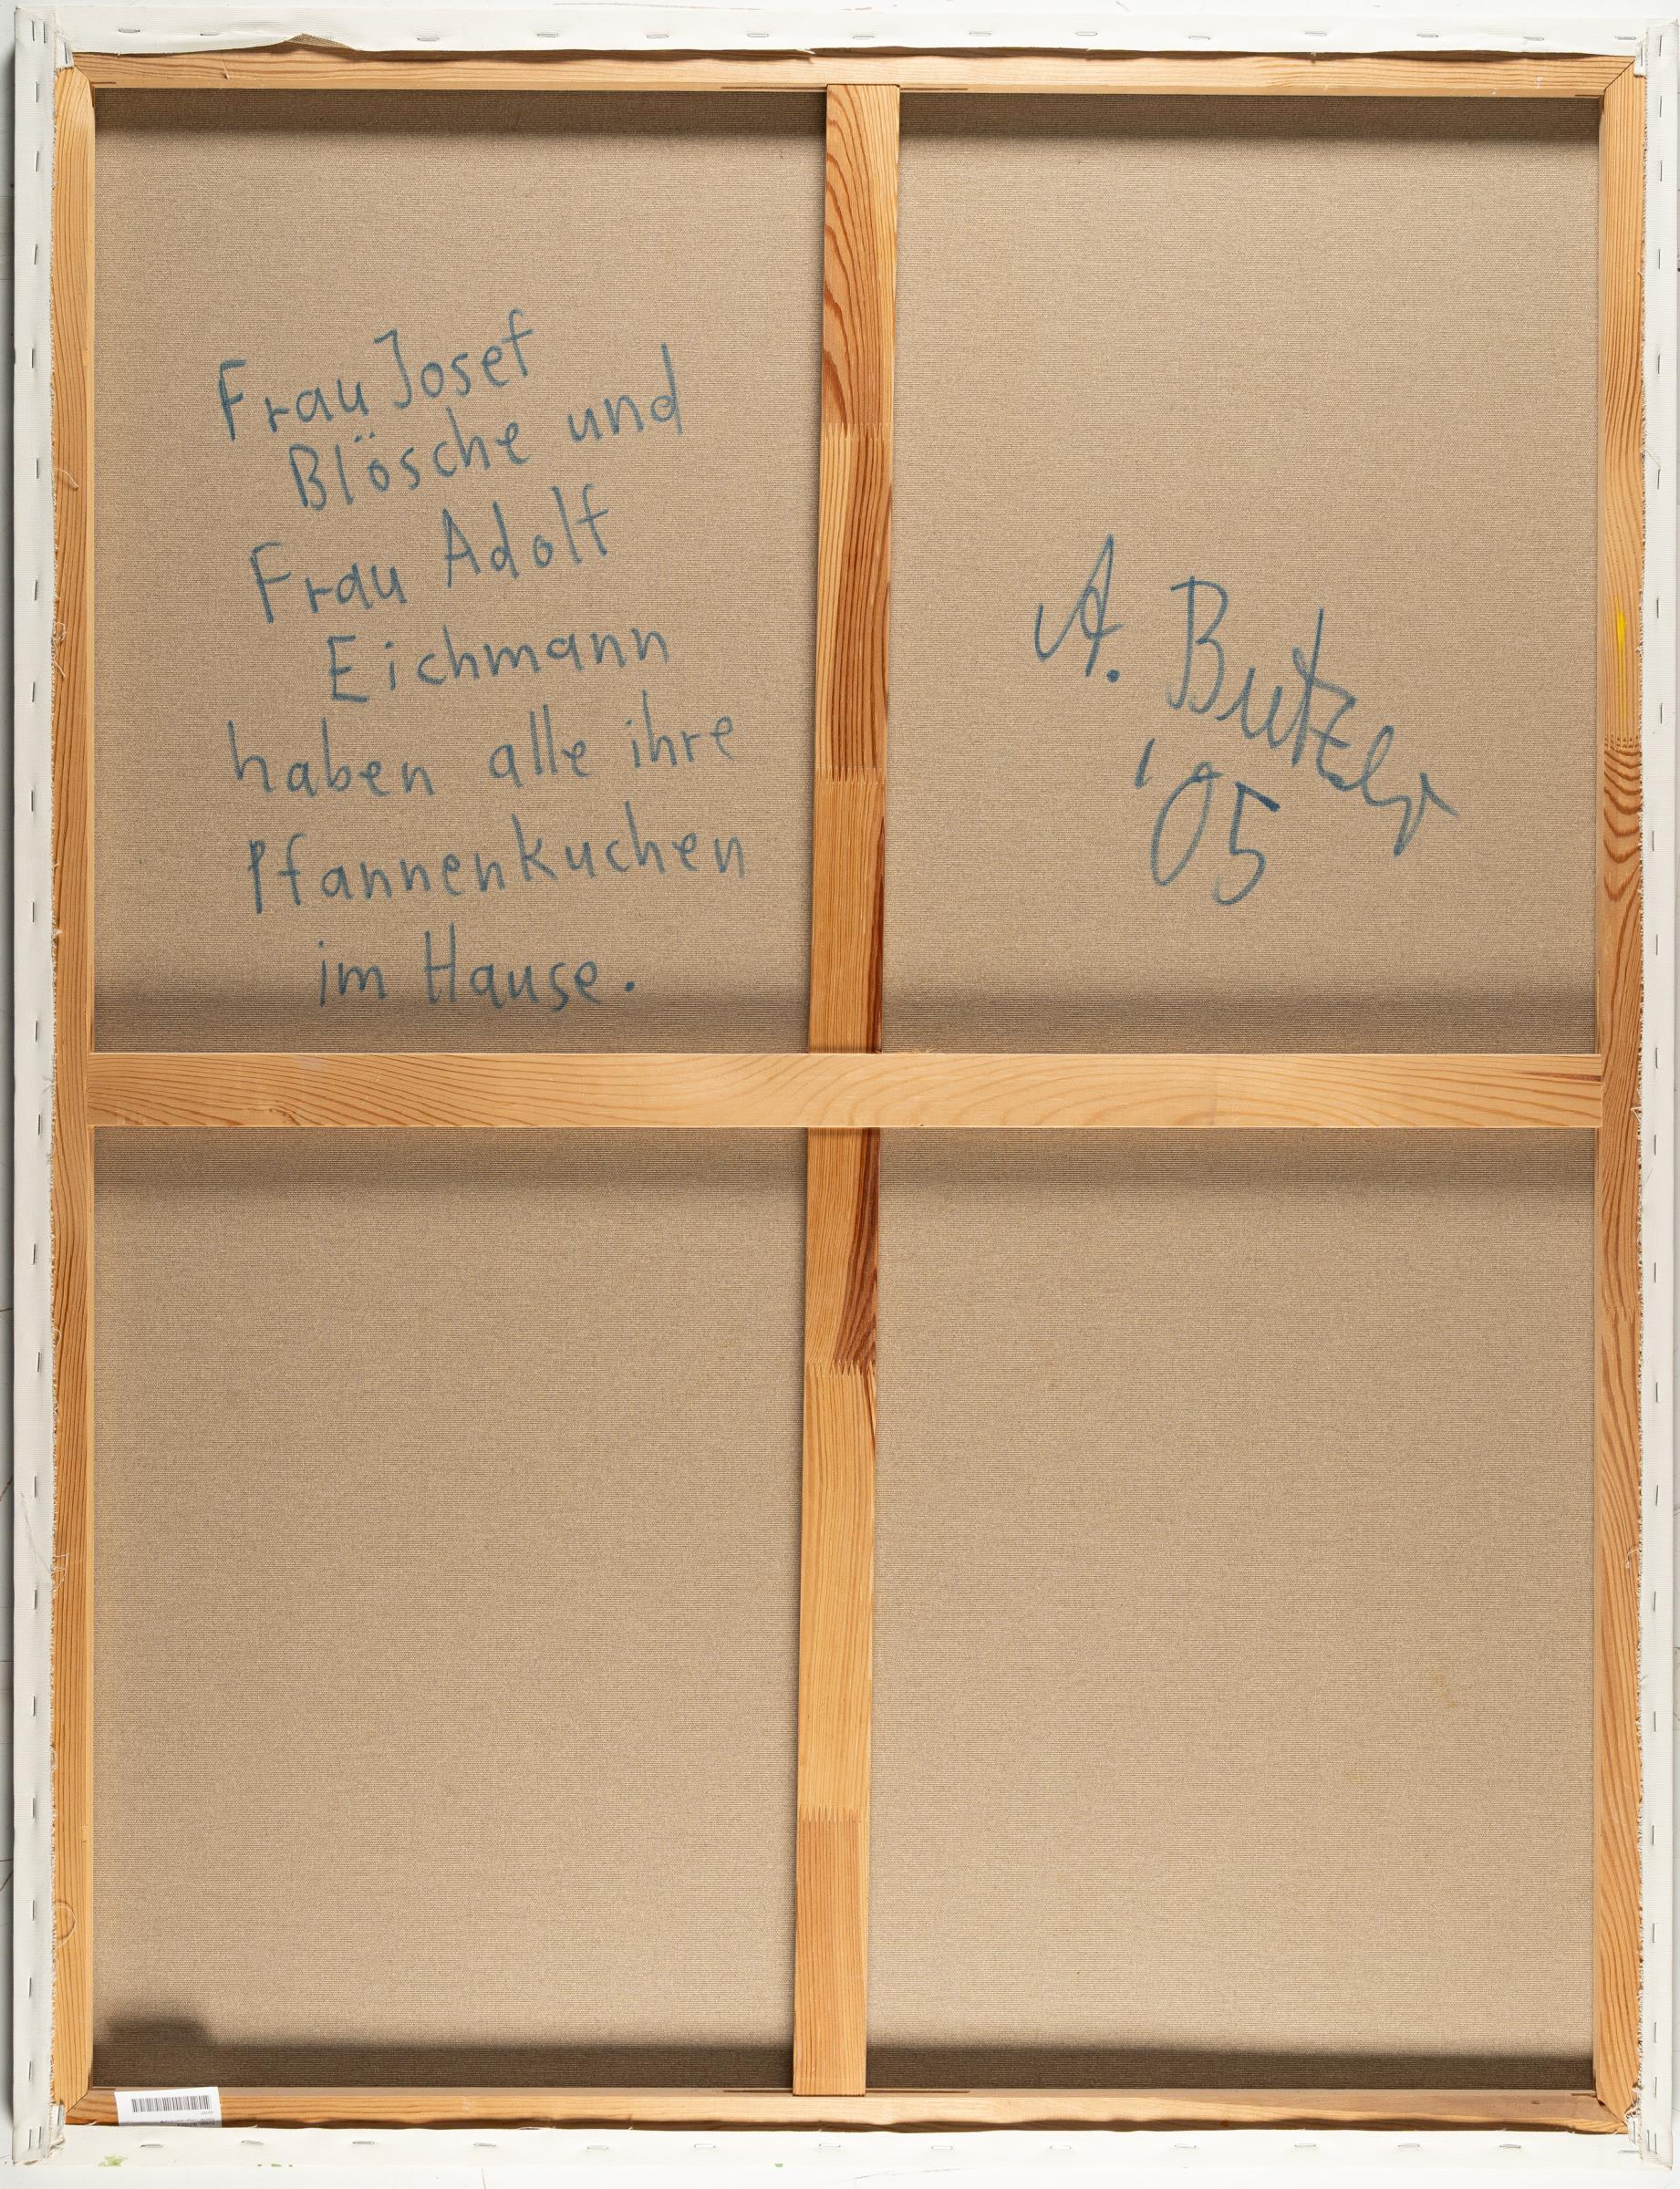 Frau Josef
Blösche und
Frau Adolf
Eichmann
haben alle ihre
Pfannenkuchen
im Hause.
A. Butzer
'05